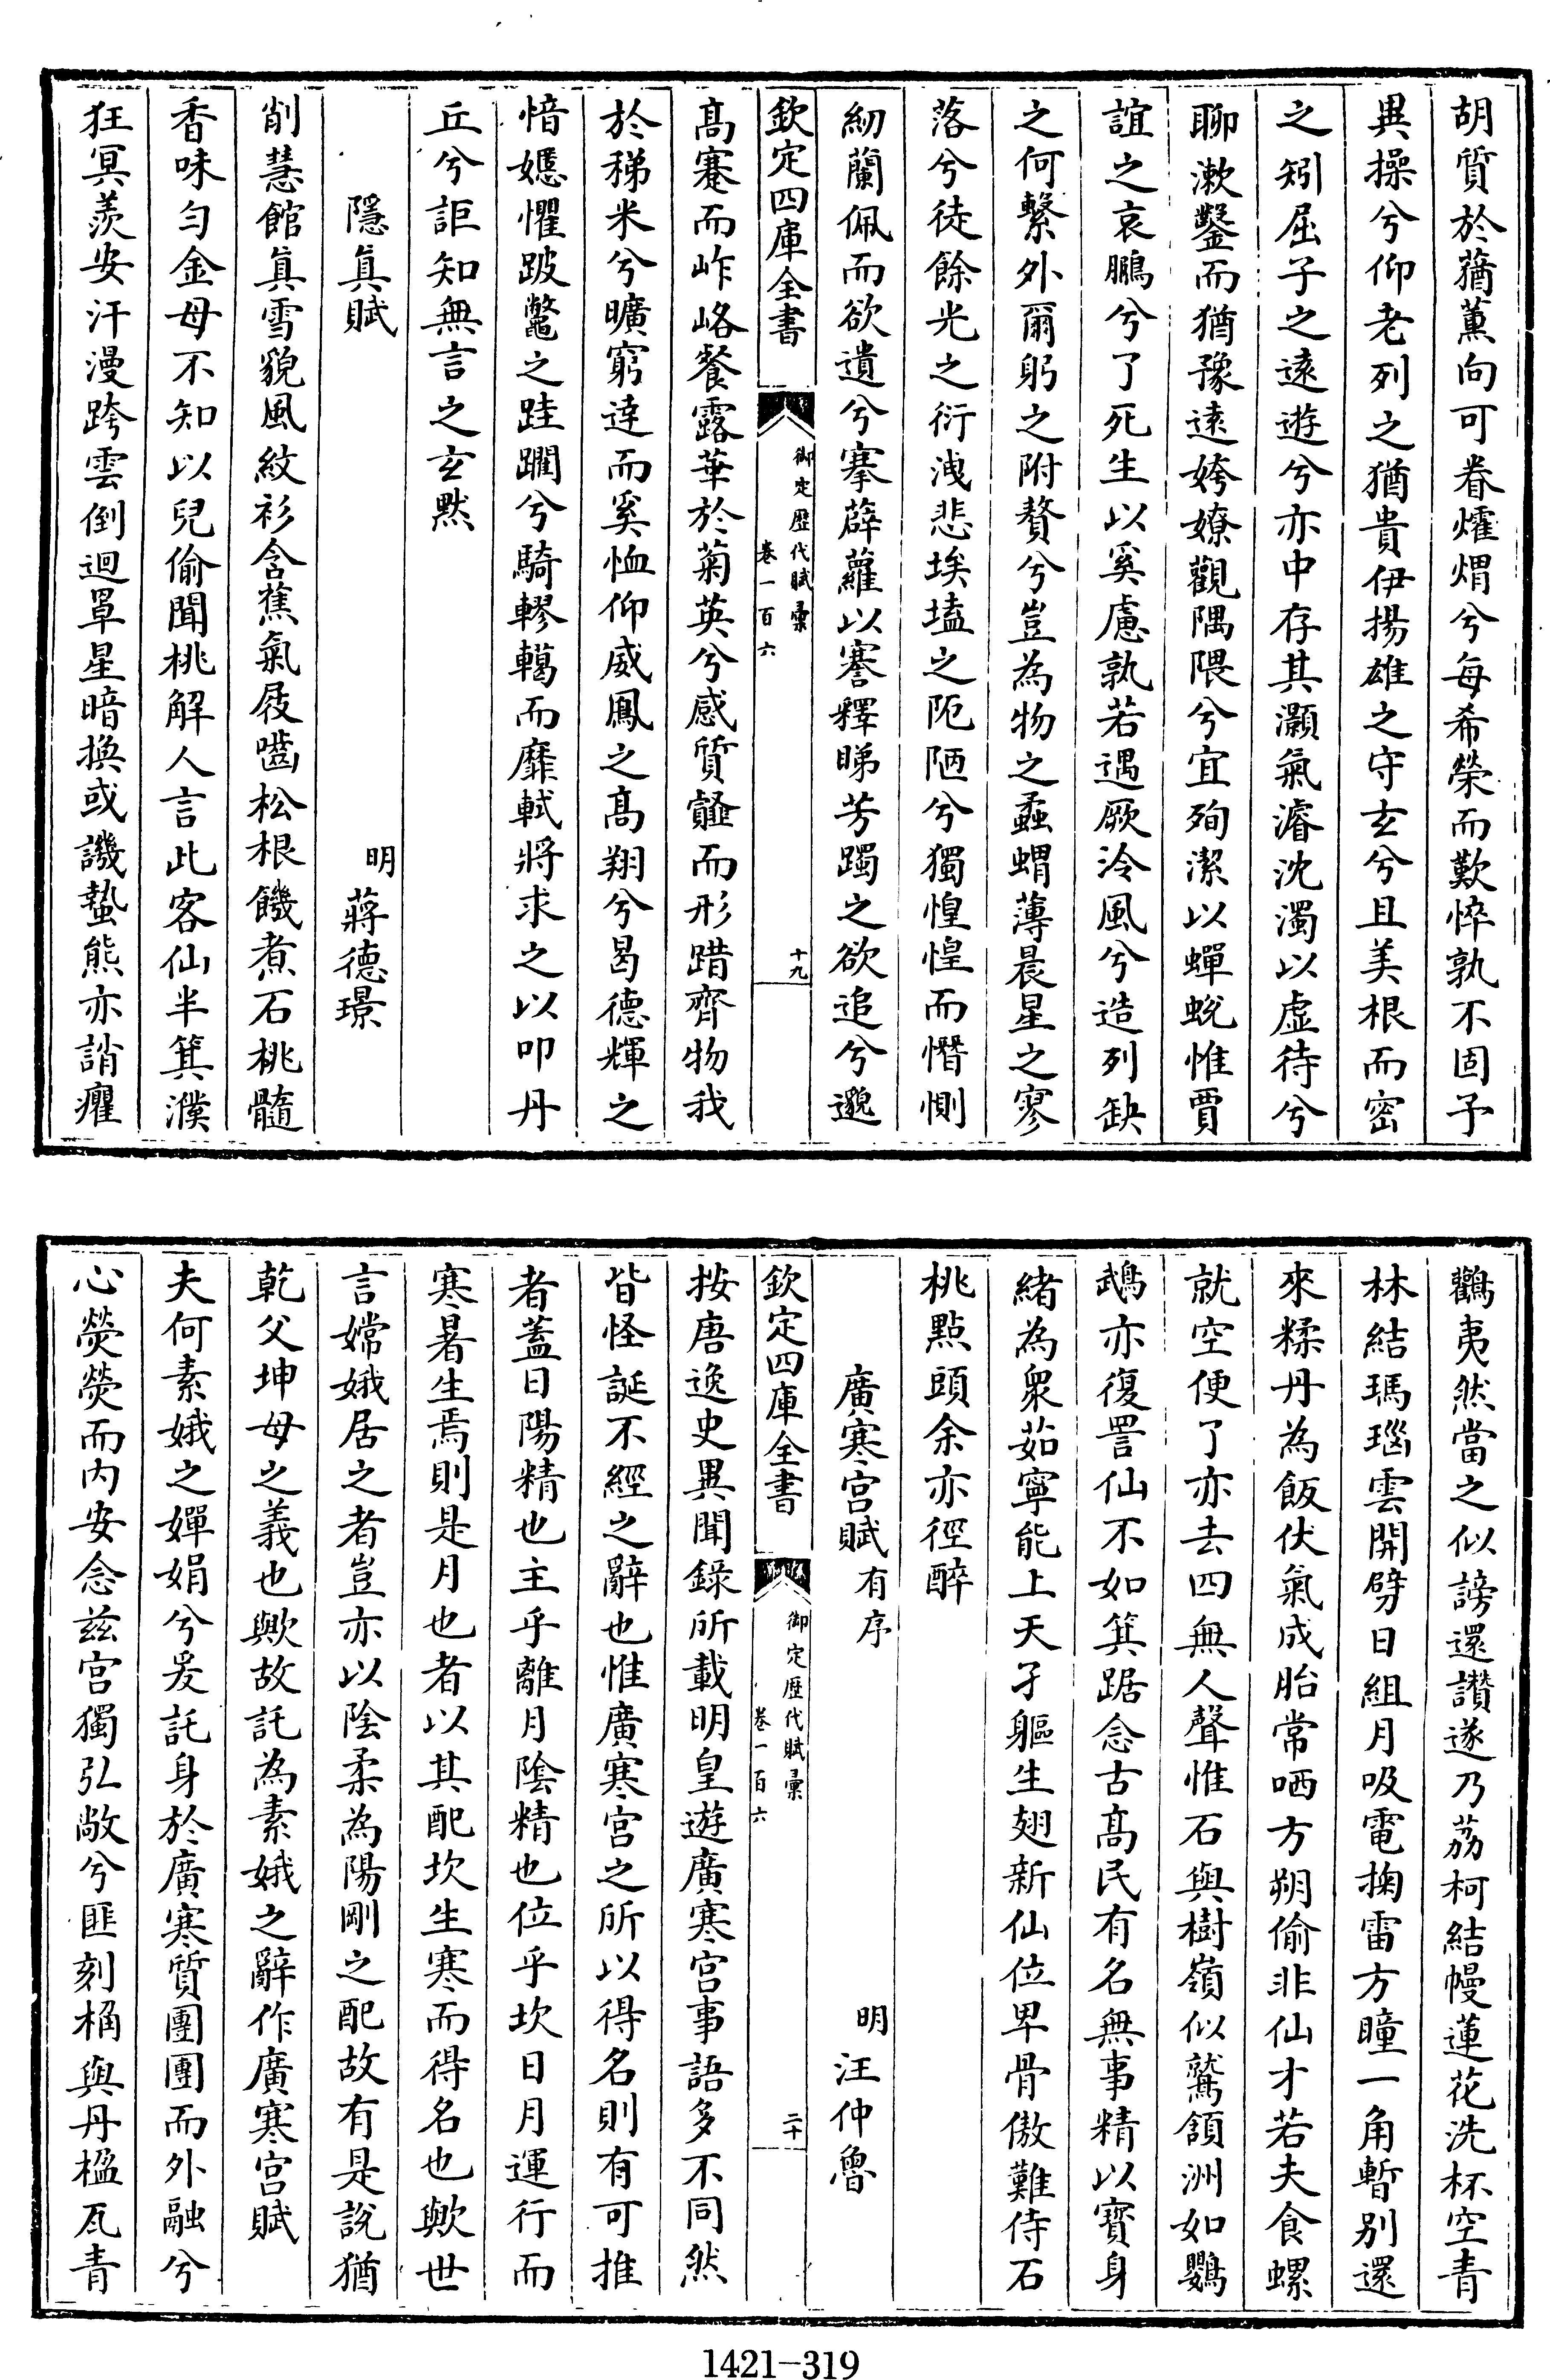 胡質於蕕薰向可眷燿煟兮每希榮而歎悴孰不固予
異操兮仰老列之猶貴伊揚雄之守玄兮且美根而密
之矧屈子之遠遊兮亦中存其灝氣濬沈濁以虛待兮
聊漱鑿而猶豫遠姱嫽觀隅隈兮宜殉潔以蟬蛻惟賈
誼之哀鵩兮了死生以奚慮孰若遇厥泠風兮造列缺
之何繫外爾躬之附贅兮兮豈為物之蝨蝟薄晨星之寥
落兮徒餘光之衍洩悲埃壒之阨陋兮獨惶惶而憯惻
紉蘭佩而欲遺兮搴薜蘿以謇釋睇芳躅之欲追兮邈
欽定四庫全書
御定歷代賦彙
卷一百六
十九
高蹇而岞峈餐露華於菊英兮感質韰而形踖齊物我
於稊米兮曠窮達而奚恤仰威鳳之高翔兮曷德輝之
愔嫕懼跛鼈之踛躙兮騎轇轕而靡軾將求之以叩丹
丘兮詎知無言之玄默
隱真賦
明 蔣德璟
削慧館真雪貌風紋衫含蕉氣屐嚙松根饑煮石桃髓
香味勻金母不知以兒偷聞桃解人言此客仙半箕濮
狂冥羨安汗漫跨雲倒迴罩星暗換或譏蟄熊亦誚癯
鸛夷然當之似謗還讚遂乃荔柯結幔蓮花洗杯空青
林結瑪瑙雲開劈日組月吸電掬雷方瞳一角暫別還
來糅丹為飯伏氣成胎常哂方朔偷非仙才若夫食螺
就空便了亦去四無人聲惟石與樹嶺似鷲頷洲如鸚
鵡亦復詈仙不如箕踞念古高民有名無事精以寶身
緒為衆茹寧能上天孑軀生翅新仙位卑骨傲難侍石
桃點頭余亦徑醉
廣寒宮賦 有序
明 汪仲魯
欽定四庫全書
御定歷代賦彙
卷一百六
二十
按唐逸史異聞錄所載明皇遊廣寒宮事語多不同然
皆怪誕不經之辭也惟廣寒宮之所以得名則有可推
者蓋日陽精也主乎離月陰精也位乎坎日月運行而
寒暑生焉則是月也者以其配坎生寒而得名也歟世
言嫦娥居之者豈亦以陰柔為陽剛之配故有是說猶
乾父坤母之義也歟故託為素娥之辭作廣寒宮賦
夫何素娥之嬋娟兮爰託身於廣寒質團團而外融兮
心熒熒而內安念茲宮獨弘敞兮匪刻桷與丹楹瓦青
1421-319